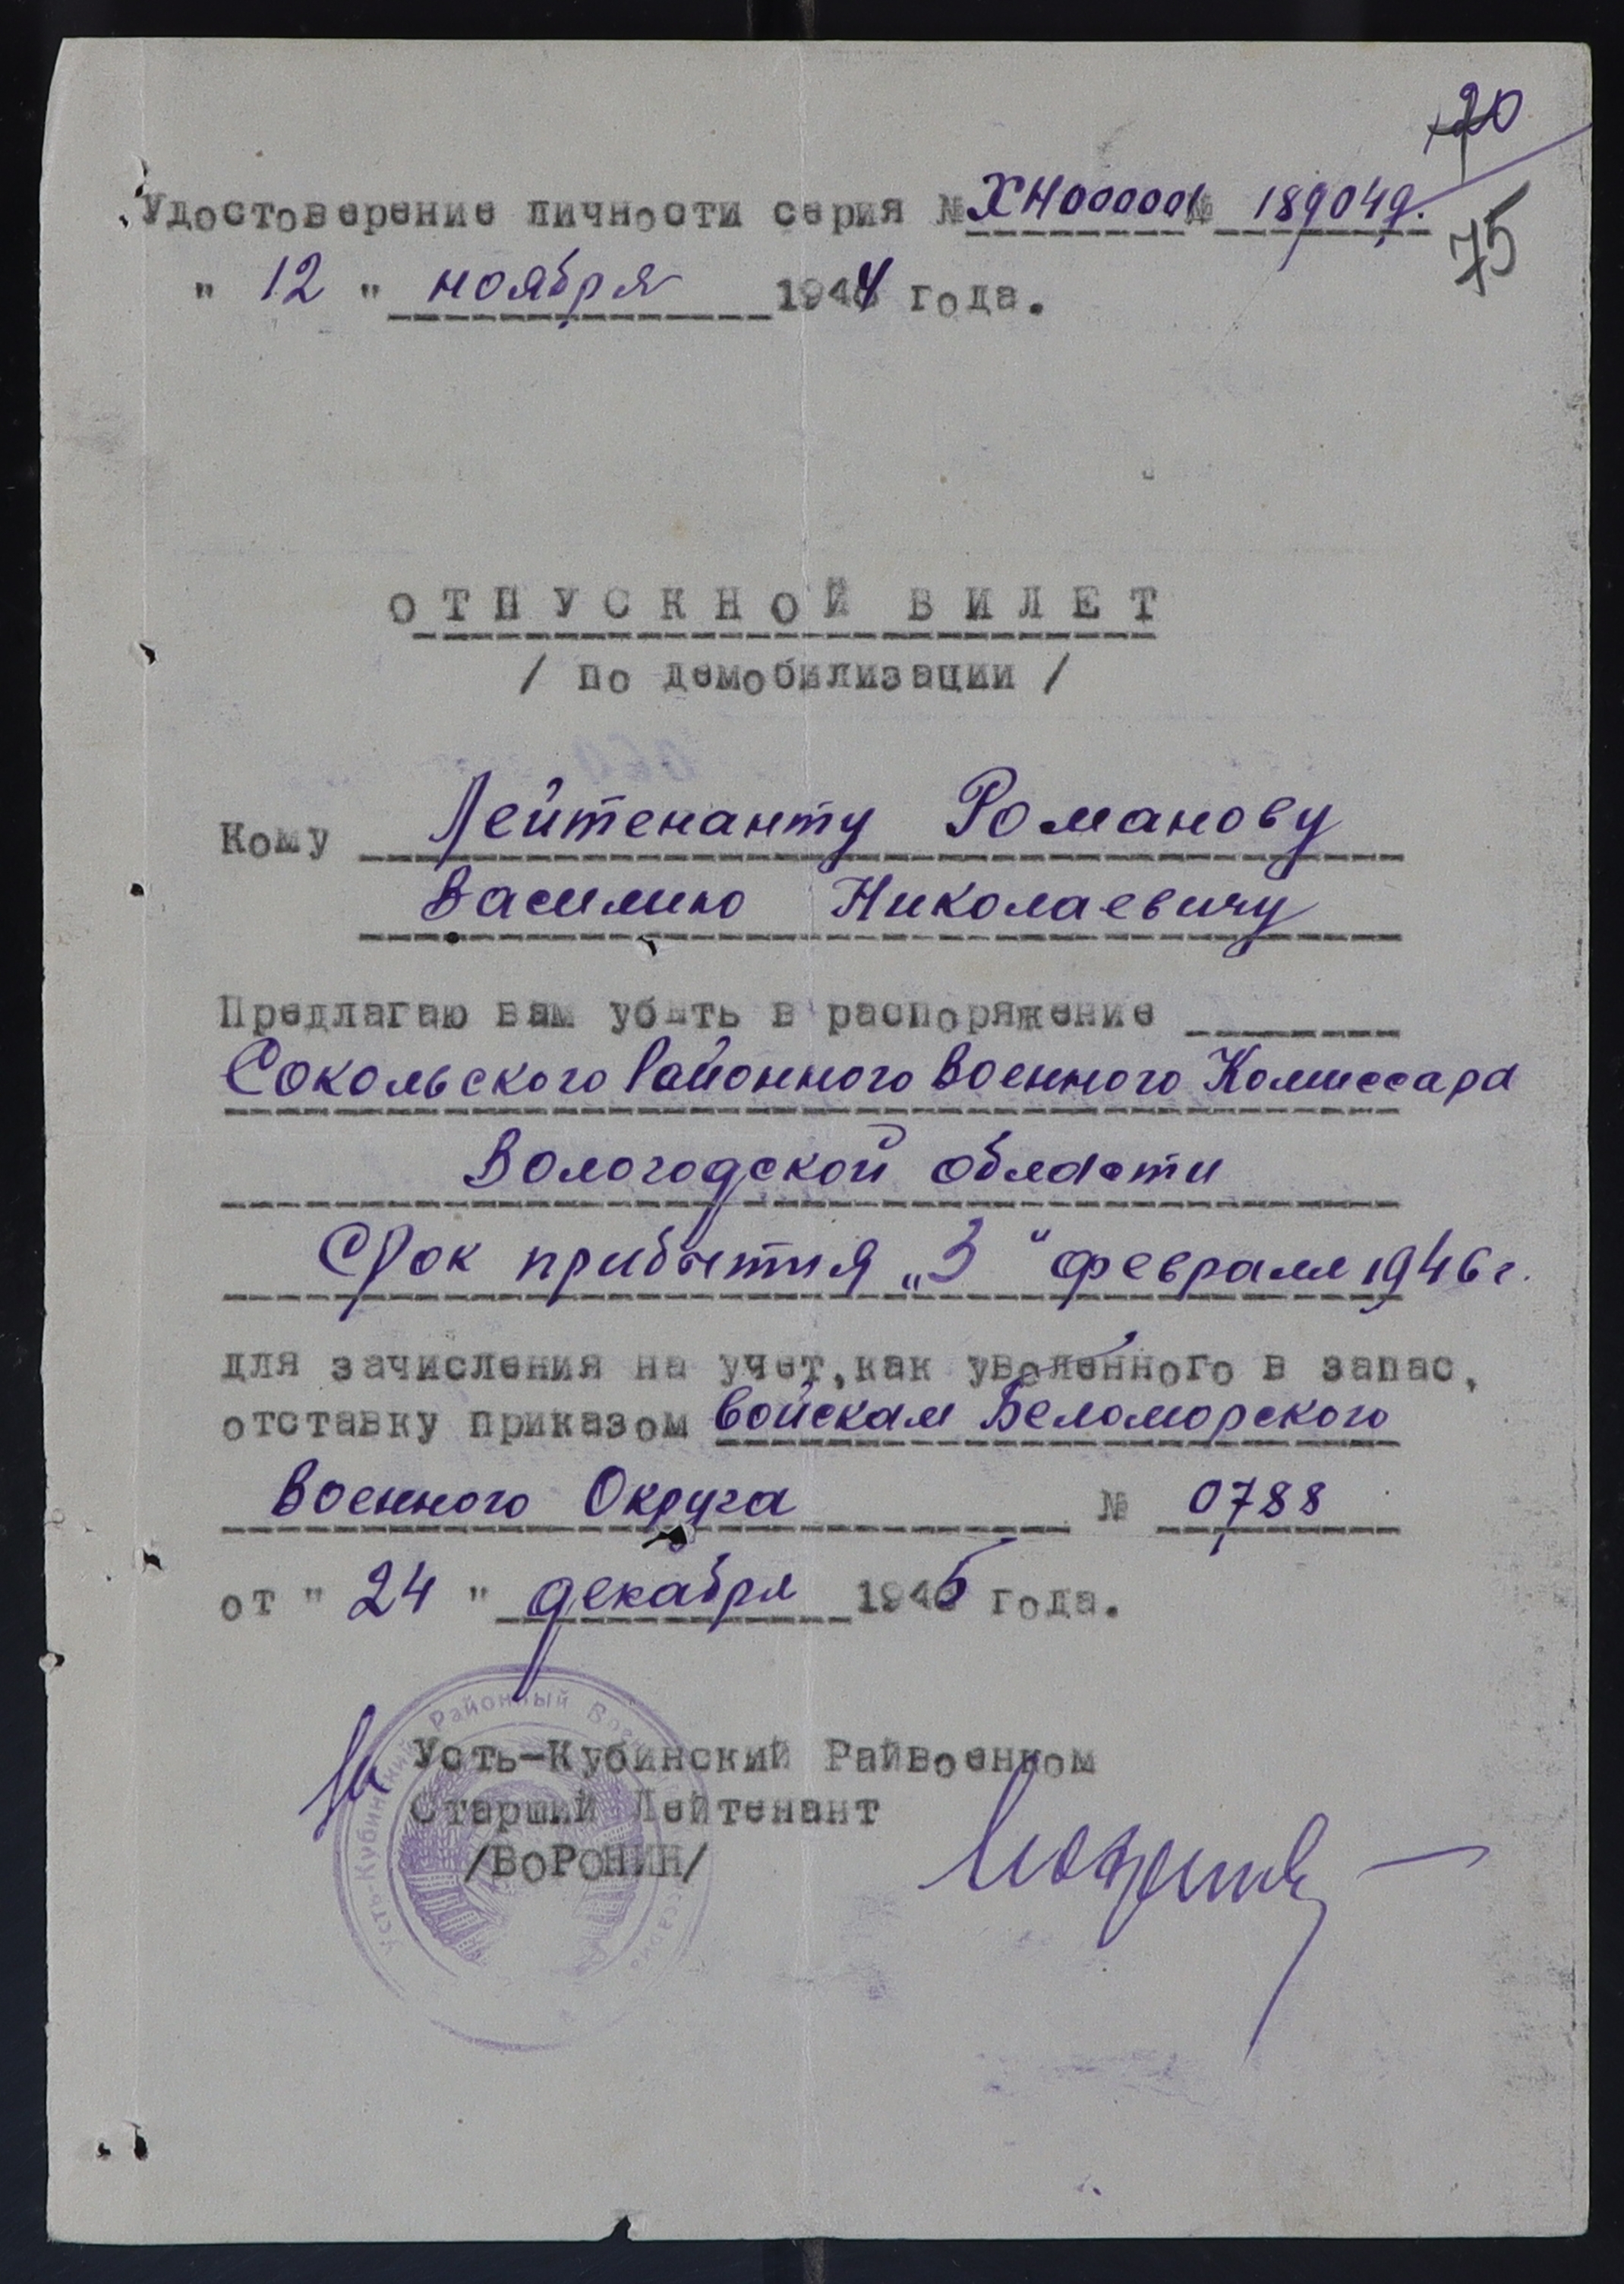 20
75
Удостоверение личности серия № ХН000001 № 189049.
" 12 " ноября 1944 года.
ОТПУСКНОЙ БИЛЕТ
/ по демобилизации /
Кому Лейтенанту Романову
Василию Николаевичу
Предлагаю вам убыть в распоряжение
Сокольского Районного Военного Комиссара
Вологодской области
Срок прибытия „3" февраля 1946 г.
для зачисления на учет, как уволенного в запас,
отставку приказом войскам Беломорского
Военного Округа № 0788
от " 24 " декабря 1945 года.
За Усть-Кубинский Райвоенком
Старший Лейтенант
/ВОРОНИН/
Усть-Кубинский Районный Военный Комиссариат